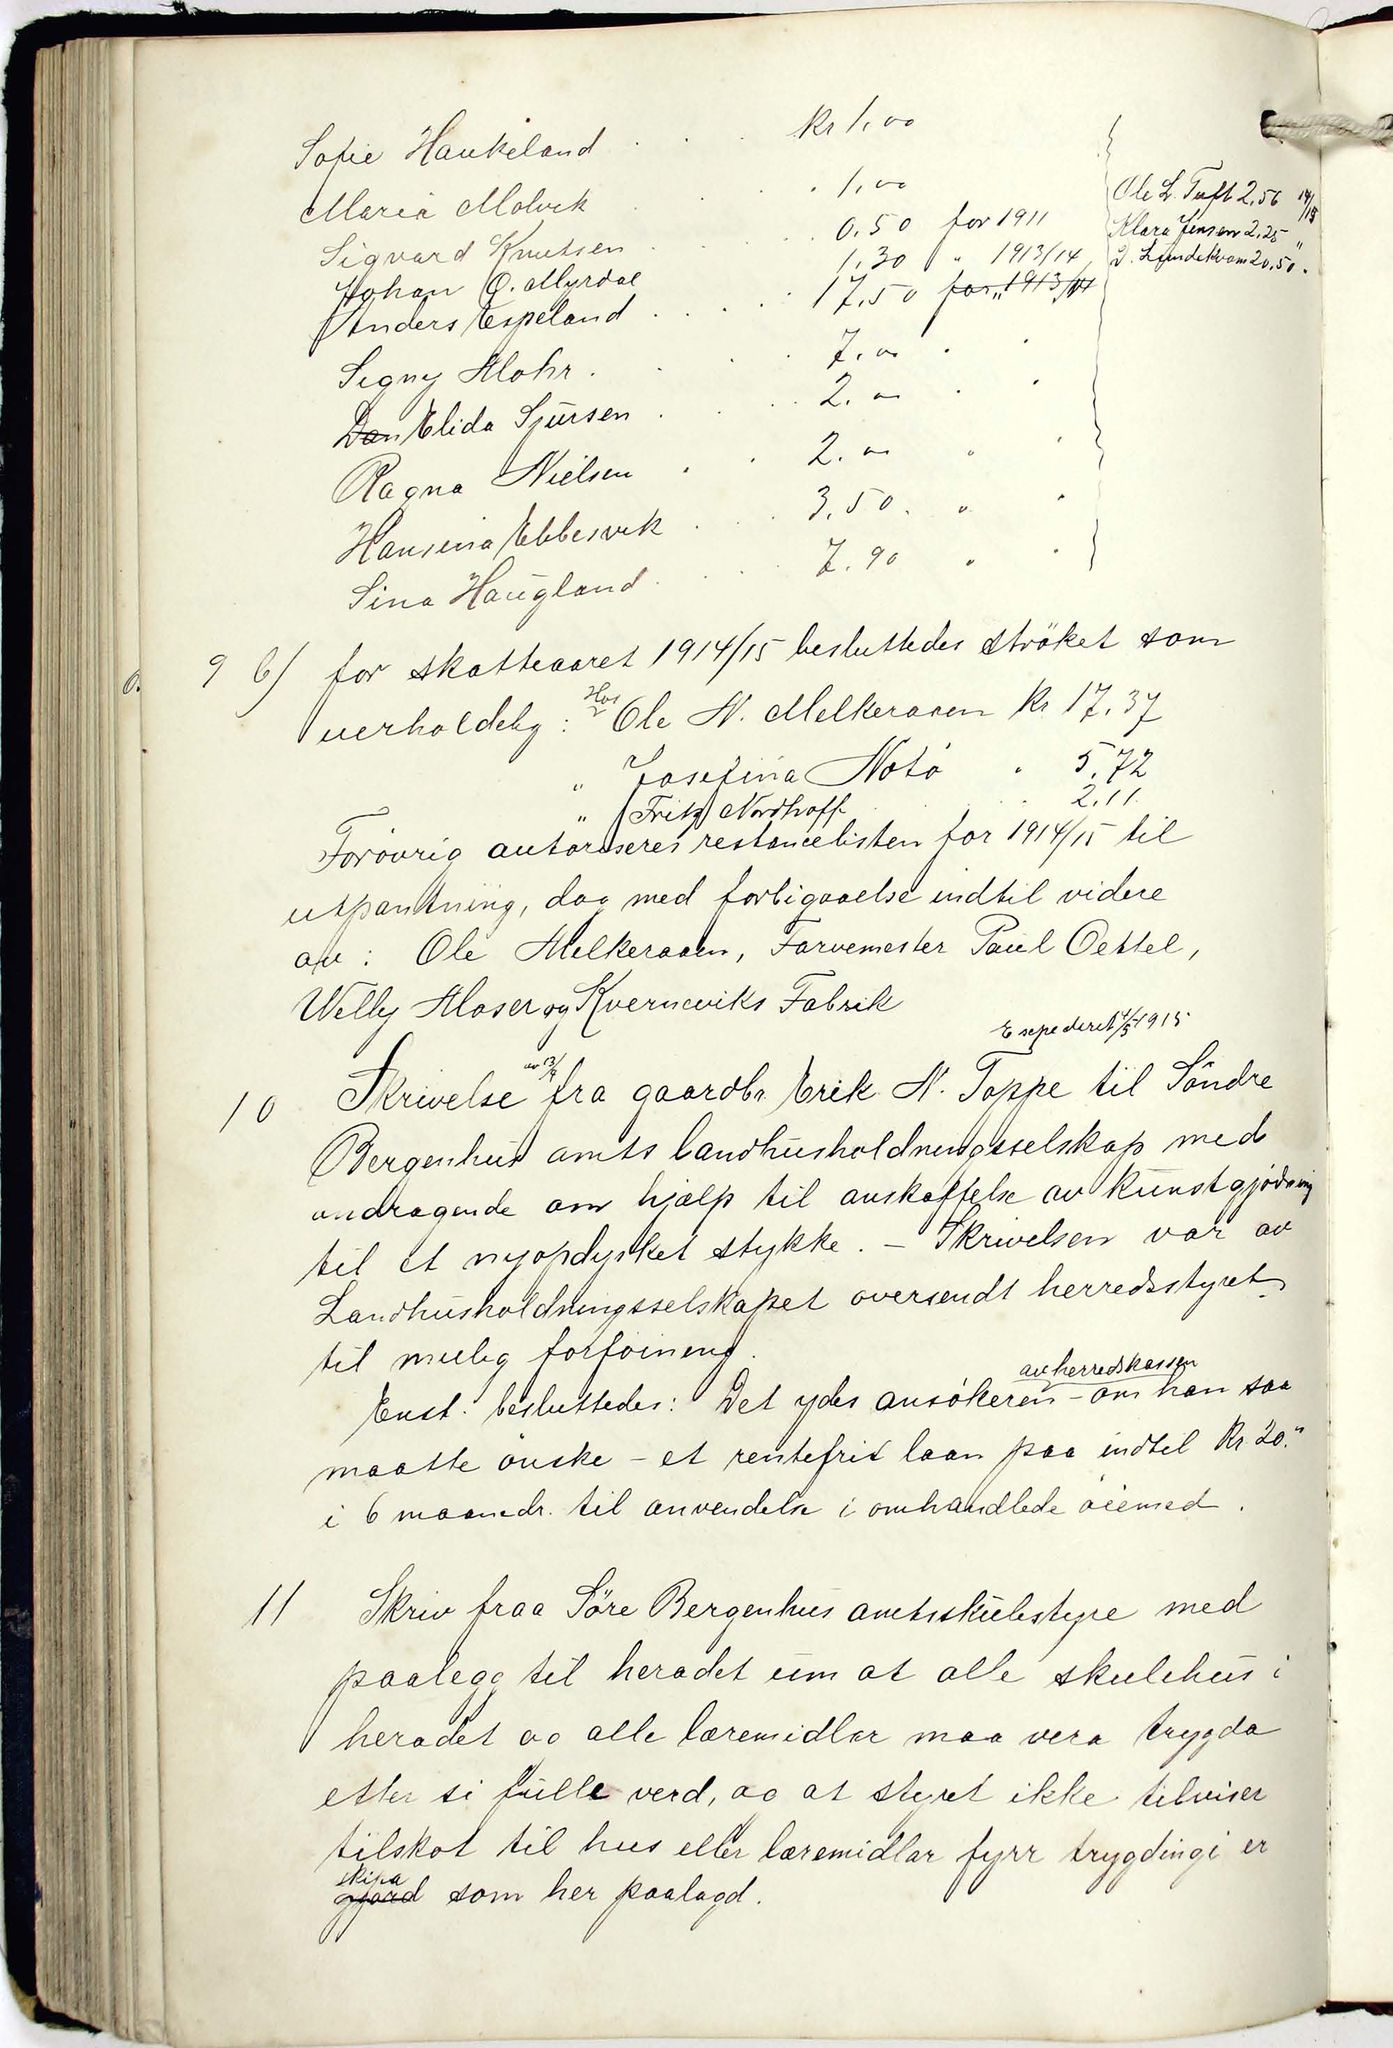 Sofie Haukeland . . . Kr 1,00
Maria Molvik . 1,00
Sigvard Knutsen . . . 0,50 for 1911
Johan O. Myrdal 1,30 " 1913/14
Anders Espeland . . . . 17,50 for " 1913/14
Signy Mohr . . . 7,00 " "
Dan Elida Sjursen . . . 2,00 " "
Ragna Nielsen . . 2,00 " "
Hansina Ebbesvik . . . 3,50. " "
Sina Haugland . . . 7.90 " "
Ole L. Tuft 2,56 14/15
Klara Jensen 2,25 "
J. Lyndekvam 20,50 "
9 b) for skatteaaret 1914/15 besluttedes ströket som
uerholdelig: Hos Ole N. Melkeraaen Kr 17,37
" Josefina Notö " 5,72
" Fritz Nordhoff . . 2,11
Forövrig autoriseres restancelisten for 1914/15 til
utpantning, dog med forbigaaelse indtil videre
av: Ole Melkeraaen, Farvemester Paul Oettel,
Welly Moser og Kverneviks Fabrik
Expederet 4/5 1915
10 Skrivelse av 13/4 fra gaardbr. Erik N. Toppe til Söndre
Bergenhus amts landhusholdningsselskap med
andragende om hjælp til anskaffelse av kunstgjödning
til et nyopdyrket stykke. – Skrivelsen var av
Landhusholdningsselskapet oversendt herredsstyret
til mulig forföining.
av herredskassen
Enst. besluttedes: Det ydes ansökeren – om han saa
maatte önske – et rentefrit laan paa indtil Kr. 20."
i 6 maaneder. til anvendelse i omhandlede öiemed.
11 Skriv fraa Söre Bergenhus amtsskulestyre med
paalegg til heradet um at alle skulehus i
heradet og alle læremidlar maa vera trygda
etter si fulle verd, og at styret ikke tilviser
tilskot til hus eller læremidlar fyrr trygdingi er
skipa
gjord som her paalagd.